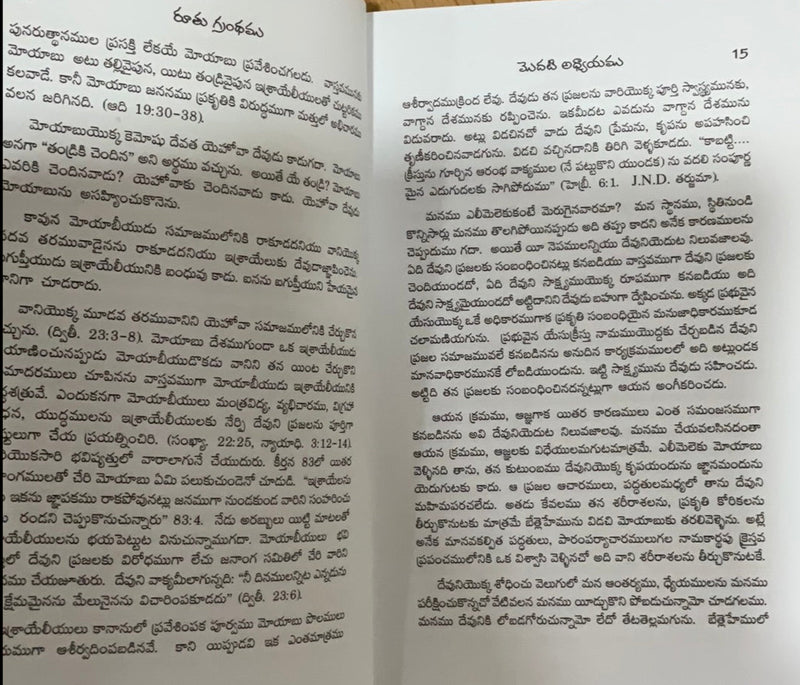 రూతు గ్రంథము
పునరుత్థానముల ప్రసక్తి లేకయే మోయాబు ప్రవేశించగలదు. వాస్తవమునకు
మోయాబు అటు తల్లివైపున, యిటు తండ్రివైపున ఇశ్రాయేలీయులతో చుట్టరికము
కలవాడే. కానీ మోయాబు జననము ప్రకృతికి విరుద్ధముగా మత్తులో అభిచారము
వలన జరిగినది. (ఆది 19:30-38).
మోయాబుయొక్క కెమోషు దేవత యెహోవా దేవుడు కాదుగదా. మోయాబు
అనగా "తండ్రికి చెందిన" అని అర్థము వచ్చును. అయితే యే తండ్రి? మోయాబు
ఎవరికి చెందినవాడు? యెహోవాకు చెందినవాడు కాదు. యెహోవా దేవుడు
మోయాబును అసహ్యించుకొనెను.
కావున మోయాబీయుడు సమాజములోనికి రాకూడదనియు వానియొక్క
పదవ తరమువాడైనను రాకూడదనియు ఇశ్రాయేలుకు దేవుడాజ్ఞాపించెను.
ఐగుప్తీయుడు ఇశ్రాయేలీయునికి బంధువు కాదు. ఐనను ఐగుప్తీయుని హేయమైన
వానిగా చూడరాదు.
వానియొక్క మూడవ తరమువానిని యెహోవా సమాజములోనికి చేర్చుకొన
వచ్చును. (ద్వితీ. 23:3-8). మోయాబు దేశముగుండా ఒక ఇశ్రాయేలీయుడు
ప్రయాణించునప్పుడు మోయాబీయుడొకడు వానిని తన యింట చేర్చుకొని
మాదరములు చూపినను వాస్తవముగా మోయాబీయుడు ఇశ్రాయేలీయునికి
శత్రువే. ఎందుకనగా మోయాబీయులు మంత్రవిద్య, వ్యభిచారము, విగ్రహా
ధన, యుద్ధములను ఇశ్రాయేలీయులకు నేర్పి దేవుని ప్రజలను పూర్తిగా
గా చేయ ప్రయత్నించిరి. (సంఖ్యా. 22:25, న్యాయాధి. 3:12-14).
యొకసారి భవిష్యత్తులో వారాలాగునే చేయుదురు. కీర్తన 83లో యితర
లతో చేరి మోయాబు ఏమి పలుకుచుండెనో చూడుడి. "ఇశ్రాయేలీయులను
ఇకను జ్ఞాపకము రాకపోవునట్లు జనముగా నుండకుండ వారిని సంహరించు
రండని చెప్పుకొనుచున్నారు" 83:4. నేడు అరబ్బులు యిట్టి మాటలతో
యేలీయులను భయపెట్టుట వినుచున్నాముగదా. మోయాబీయులు భవి
లో దేవుని ప్రజలకు విరోధముగా లేచు జనాంగ సమితిలో చేరి వారిని
చేయజూతురు. దేవుని వాక్యమీలాగున్నది: "నీ దినములన్నిట ఎన్నడును
క్షేమమైనను మేలునైనను విచారింపకూడదు" (ద్వితీ. 23:6).
ఇశ్రాయేలీయులు కానానులో ప్రవేశింపక పూర్వము మోయాబు పొలములు
ముగా ఆశీర్వదింపబడినవే. కాని యిప్పుడవి ఇక ఎంతమాత్రము
మొదటి అధ్యాయము 15
ఆశీర్వాదముక్రింద లేవు. దేవుడు తన ప్రజలను వారియొక్క పూర్తి స్వాస్థ్యమునకు,
వాగ్దాన దేశమునకు రప్పించెను. ఇకమీదట ఎవడును వాగ్దాన దేశమును
విడువరాదు. అట్లు విడచినచో వాడు దేవుని ప్రేమను, కృపను అపహసించి
తృణీకరించినవాడగును. విడచి వచ్చినదానికి తిరిగి వెళ్ళకూడదు. "కాబట్టి....
క్రీస్తును గూర్చిన ఆరంభ వాక్యముల (నే పట్టుకొని యుండక) ను వదలి సంపూర్ణ
మైన ఎదుగుదలకు సాగిపోదుము" (హెబ్రీ. 6:1. J.N.D. తర్జుమా).
మనము ఎలీమెలెకుకంటే మెరుగైనవారమా? మన స్థానము, స్థితినుండి
కొన్నిసార్లు మనము తొలగిపోయినప్పుడు అది తప్పు కాదని అనేక కారణములను
చెప్పుదుము గదా. అయితే యీ నెపములన్నియు దేవునియెదుట నిలువజాలవు.
ఏది దేవుని ప్రజలకు సంబంధించినట్లు కనబడియు వాస్తవముగా దేవుని ప్రజలకు
చెందియుండదో, ఏది దేవుని సాక్ష్యముయొక్క రూపముగా కనబడియు అది
దేవుని సాక్ష్యమైయుండదో అట్టిదానిని దేవుడు బహుగా ద్వేషించును. అక్కడ ప్రభువైన
యేసుయొక్క ఒకే అధికారముగాక ప్రకృతి సంబంధియైన మనుజాధికారముకూడ
చలామణియగును. ప్రభువైన యేసుక్రీస్తు నామముయొద్దకు చేర్చబడిన దేవుని
ప్రజల సమాజమువలే కనబడినను అనుదిన కార్యక్రమములలో అది అట్లుండక
మానవాధికారమునకే లోబడియుండును. ఇట్టి సాక్ష్యమును దేవుడు సహించడు.
అట్టిది తన ప్రజలకు సంబంధించినదన్నట్లుగా ఆయన అంగీకరించడు.
ఆయన క్రమము, ఆజ్ఞగాక యితర కారణములు ఎంత సమంజసముగా
కనబడినను అవి దేవునియెదుట నిలువజాలవు. మనము చేయవలసినదంతా
ఆయన క్రమము, ఆజ్ఞలకు విధేయులమగుటమాత్రమే. ఎలీమెలెకు మోయాబు
వెళ్ళినది తాను, తన కుటుంబము దేవునియొక్క కృపయందును జ్ఞానమందును
యెదుగుటకు కాదు. ఆ ప్రజల ఆచారములు, పద్ధతులమధ్యలో తాను దేవుని
మహిమపరచలేడు. అతడు కేవలము తన శరీరాశలను, ప్రకృతి కోరికలను
తీర్చుకొనుటకు మాత్రమే బేత్లెహేమును విడచి మోయాబుకు తరలివెళ్ళెను. అట్లే
అనేక మానవకల్పిత పద్ధతులు, పారంపర్యాచారములుగల నామకార్థపు క్రైస్తవ
ప్రపంచములోనికి ఒక విశ్వాసి వెళ్ళినచో అది వాని శరీరాశలను తీర్చుకొనుటకే.
దేవునియొక్క శోధించు వెలుగులో మన ఆంతర్యము, ధ్యేయములను మనము
పరీక్షించుకొన్నచో వేటివలన మనము యీడ్చుకొని పోబడుచున్నామో చూడగలము.
మనము దేవునికి లోబడగోరుచున్నామో లేదో తేటతెల్లమగును. బేత్లెహేములో